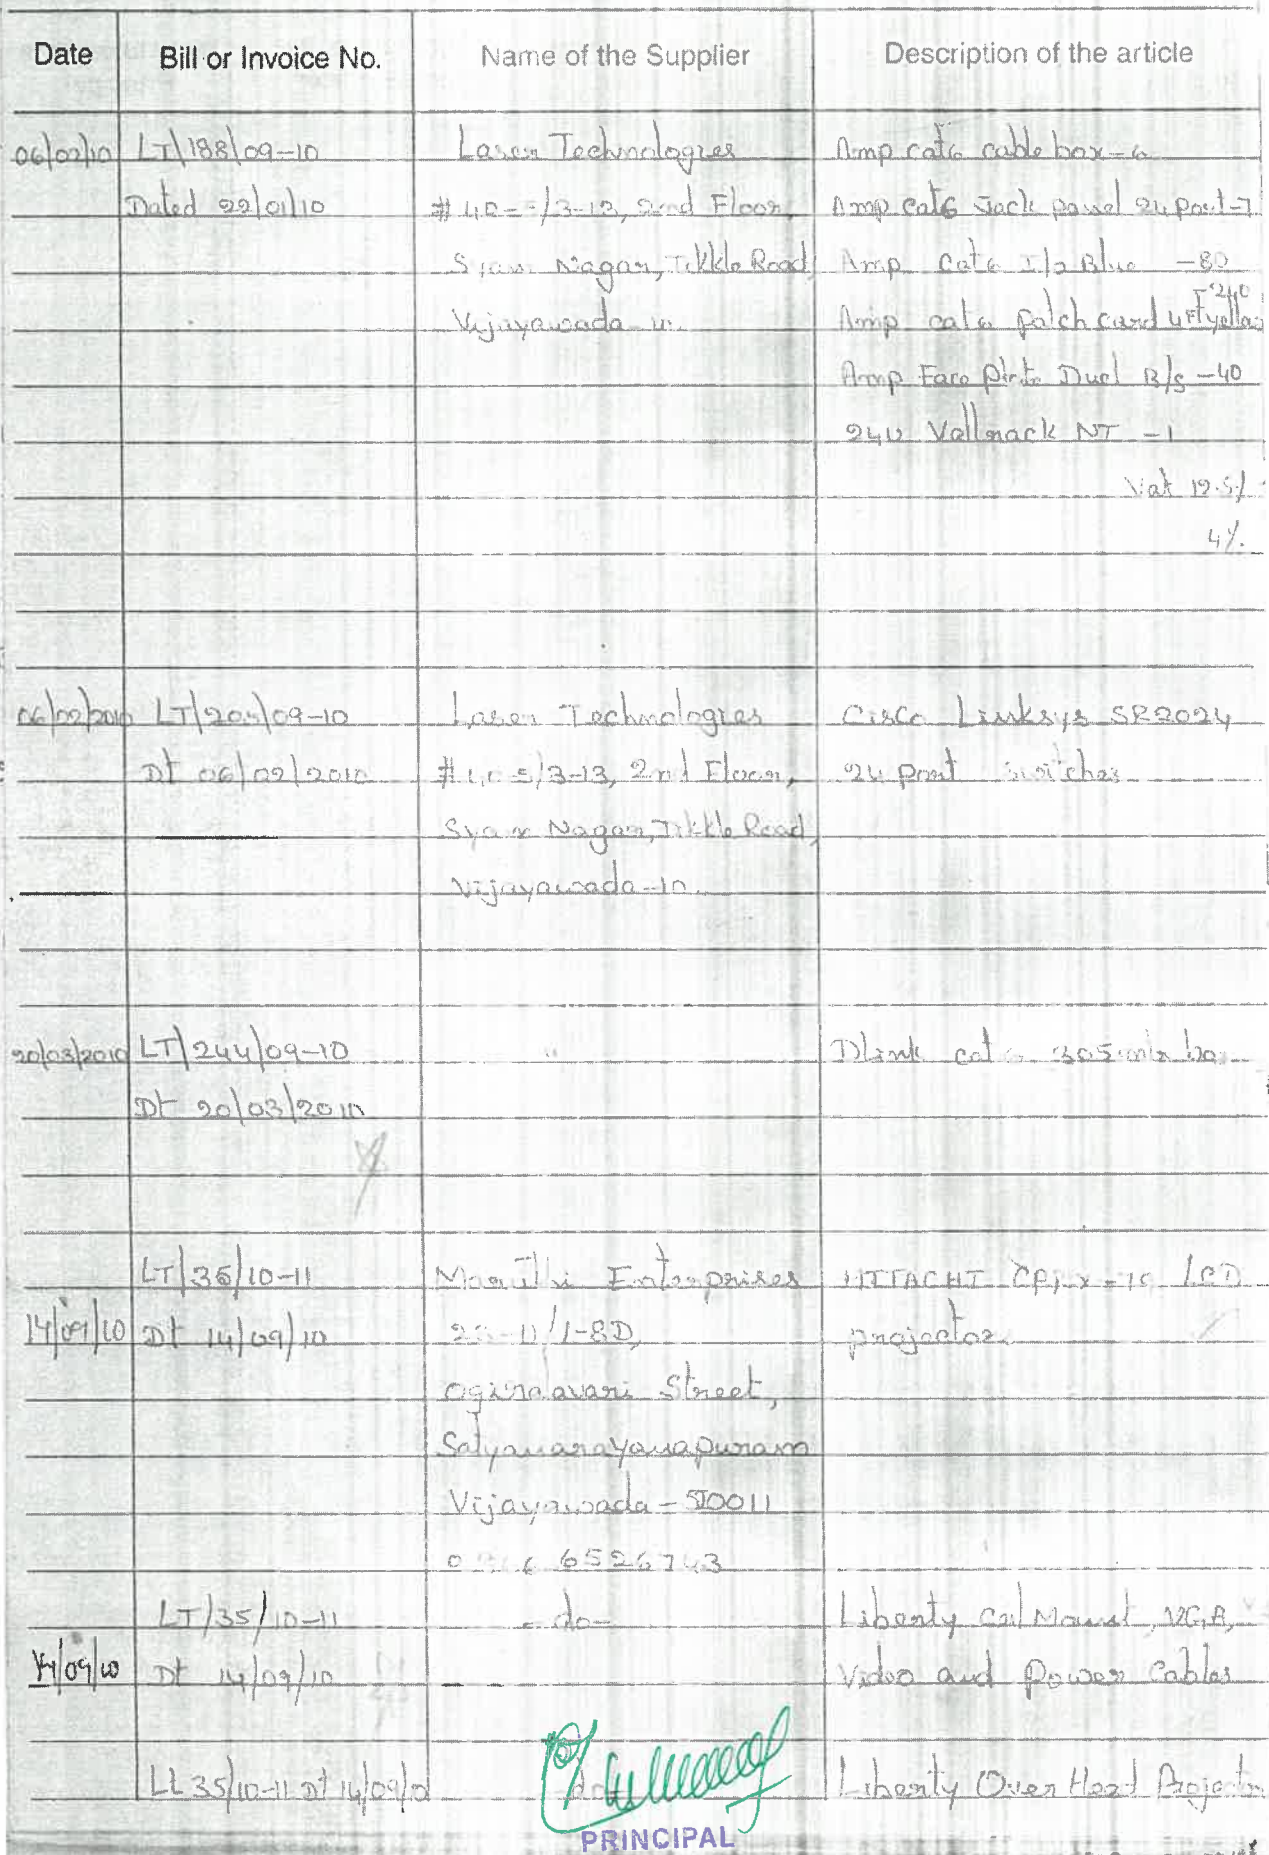 Date Bill or Invoice No. Name of the Supplier Description of the article
06/02/10 LT/188/09-10 Laser Technologies Amp cat6 cable box-6
Dated 22/01/10 2nd Floor, Amp cat6 Jack panel 24 port-7
Nagar, Tikkle Road, Amp cat6 I/o Blue -80
Vijayawada Amp cat6 patch card 4Ft yellow -240
Amp Face plate Dual B/s -40
24U Vallrack NT -1
Vat 12.5%
4%.
06/02/2010 LT/205/09-10 Laser Technologies Cisco Linksys SR2024
Dt 06/02/2010 2nd Floor, 24 port switches
Syam Nagar, Tikkle Road,
Vijayawada-10.
20/03/2010 LT/244/09-10 " Dlink cat 6 305 mtr box
Dt 20/03/2010
LT/35/10-11 Maruthi Enterprises HITACHI LCD
14/09/10 Dt 14/09/10 /1-8D, projector
Ogiralavari Street,
Satyanarayanapuram
Vijayawada-520011
6526743
LT/35/10-11 -do- Liberty Mount, VGA,
14/09/10 Dt 14/09/10 Video and Power Cables
35/10-11 Dt 14/09/ -do- Liberty Over Head Projector
PRINCIPAL